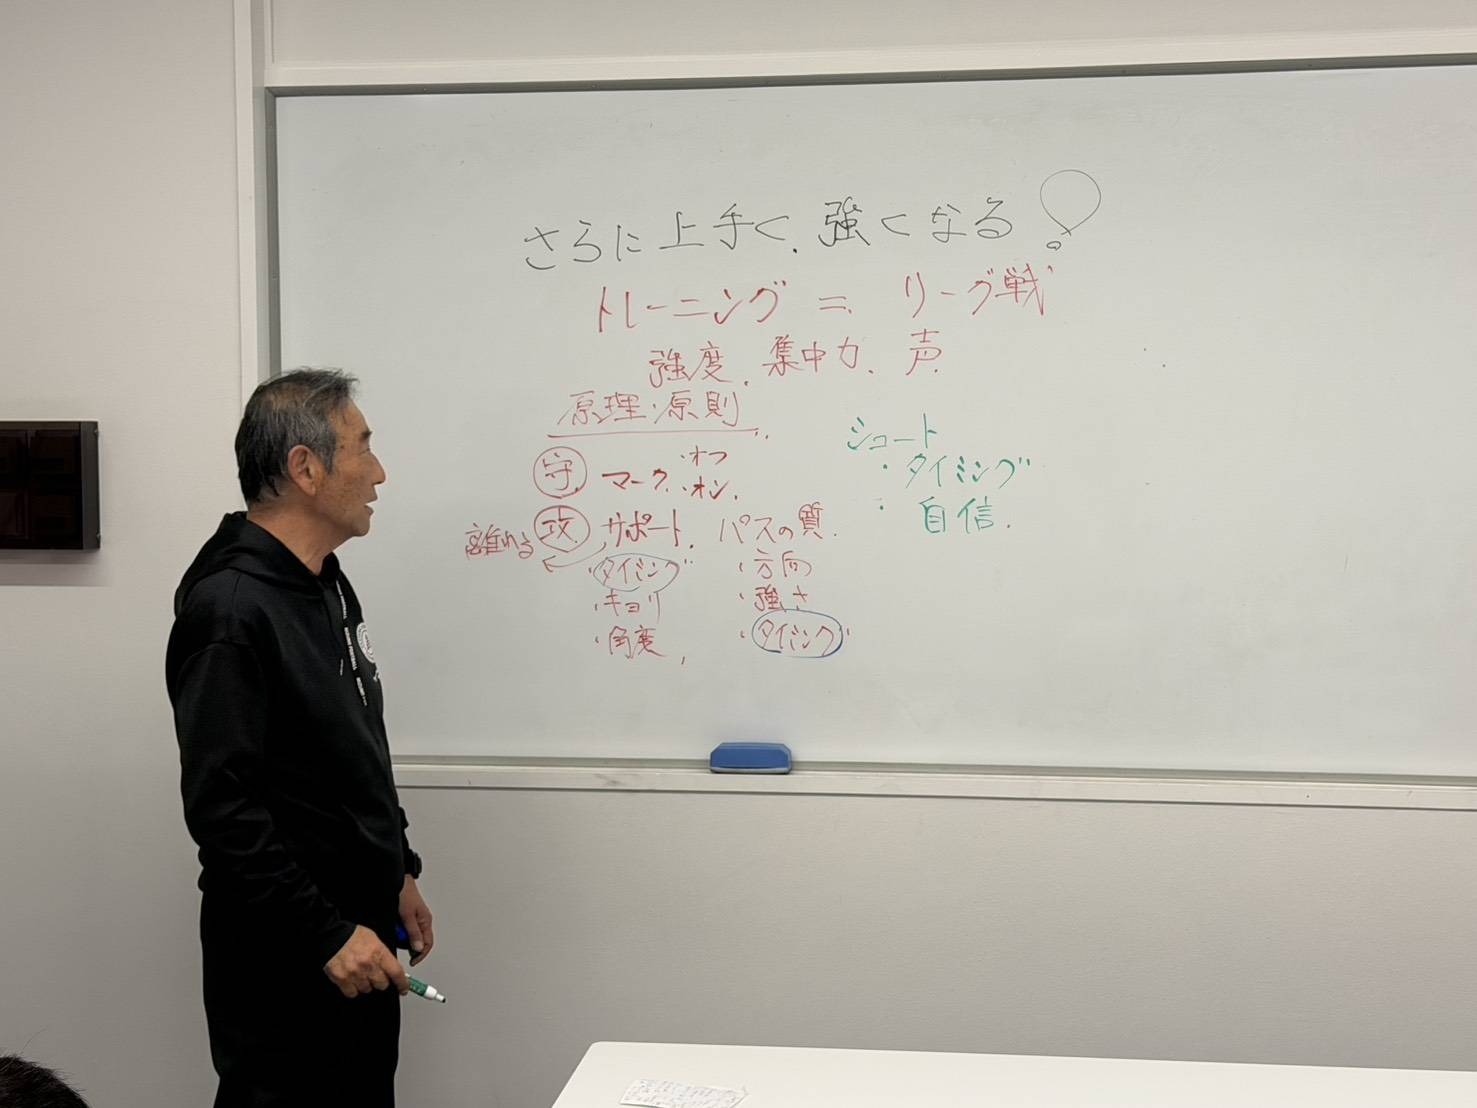 さらに上手く、強くなる!
トレーニング = リーグ戦
強度、集中力、声
原理・原則
守 マーク ・オフ
・オン
離れる 攻 サポート、
・タイミング
・キョリ
・角度
パスの質
・方向
・強さ
・タイミング
シュート
・タイミング
・自信